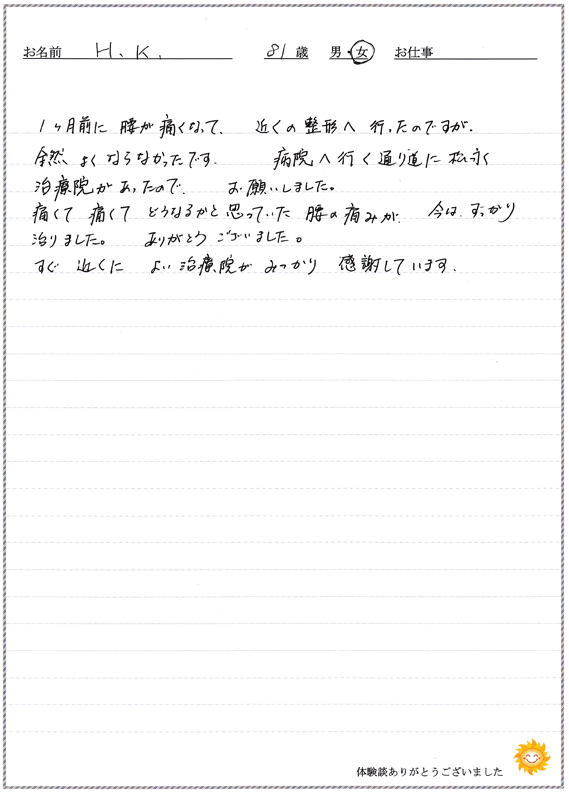 お名前 H.K. 81歳 男・女 お仕事
1ヶ月前に 腰が痛くなって、 近くの整形へ 行ったのですが、
全然 よくならなかったです。 病院へ行く通り道に 松永
治療院が あったので、 お願いしました。
痛くて 痛くて どうなるかと思っていた 腰の痛みが、 今は、すっかり
治りました。 ありがとうございました。
すぐ 近くに よい治療院が みつかり 感謝しています。
体験談ありがとうございました